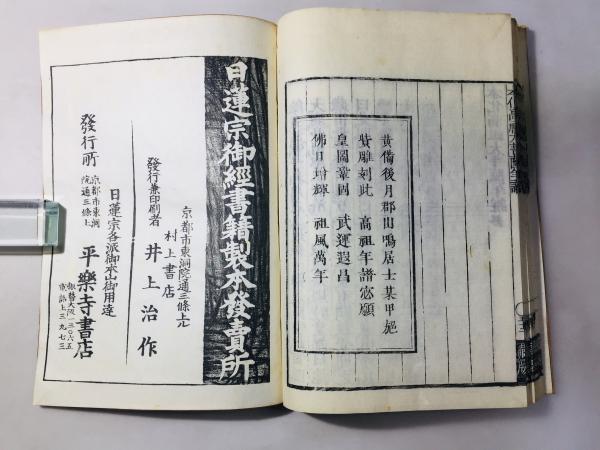 黄備後月郡出鳴居士某甲捐
貲雕刻此　高祖年譜寄願
皇圖鞏固　武運遐昌
佛日增輝　祖風萬年
日蓮宗御經書籍製本發賣所
京都市東洞院通三條上ル
村上書店
發行兼印刷者　井上治作
日蓮宗各派御本山御用達
發行所
京都市東洞
院通三條上
平樂寺書店
振替大阪一三〇六五
電話上三九七三